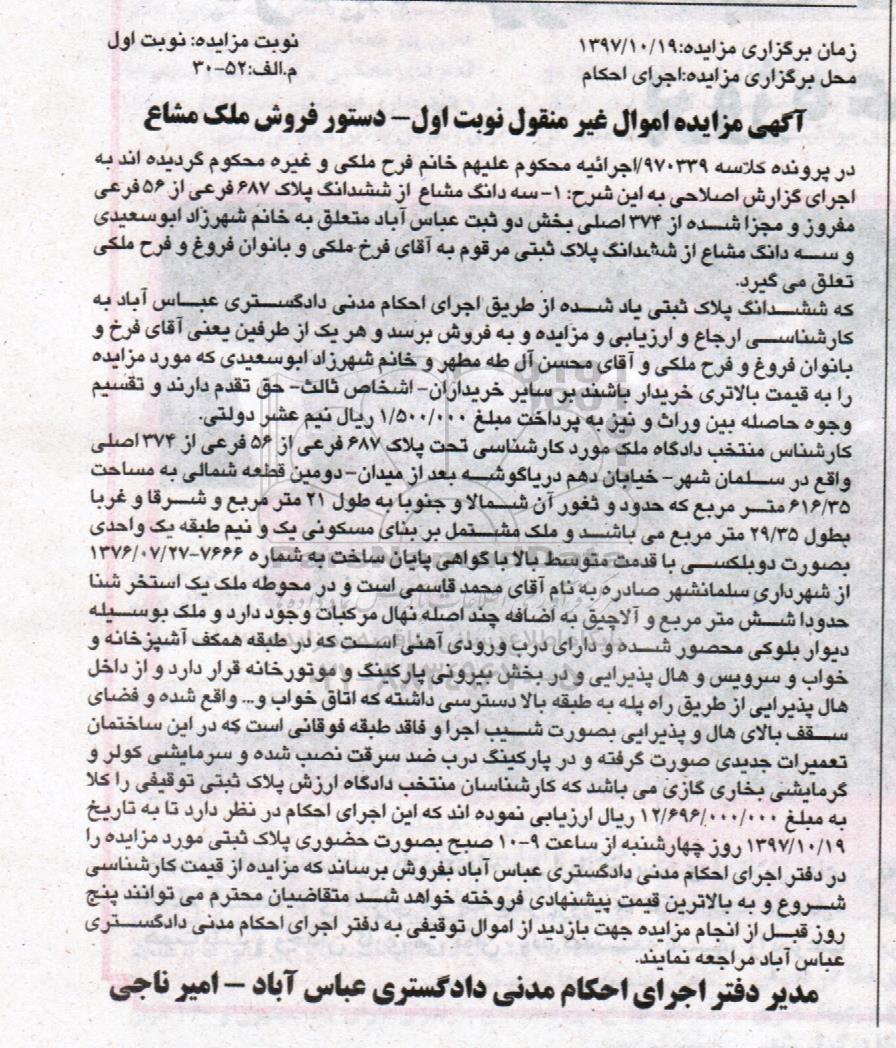 زمان برگزاری مزایده:۱۳۹۷/۱۰/۱۹
نوبت مزایده: نوبت اول
محل برگزاری مزایده:اجرای احکام
م.الف:۵۲-۳۰
آگهی مزایده اموال غیر منقول نوبت اول- دستور فروش ملک مشاع
در پرونده کلاسه ۹۷۰۳۳۹/اجرائیه محکوم علیهم خانم فرح ملکی و غیره محکوم گردیده اند به
اجرای گزارش اصلاحی به این شرح: ۱-سه دانگ مشاع از ششدانگ پلاک ۶۸۷ فرعی از ۵۶فرعی
مفروز و مجزا شده از ۳۷۴ اصلی بخش دو ثبت عباس آباد متعلق به خانم شهرزاد ابوسعیدی
و سه دانگ مشاع از ششدانگ پلاک ثبتی مرقوم به آقای فرخ ملکی و بانوان فروغ و فرح ملکی
تعلق می گیرد.
که ششدانگ پلاک ثبتی یاد شده از طریق اجرای احکام مدنی دادگستری عباس آباد به
کارشناسی ارجاع و ارزیابی و مزایده و به فروش برسد و هر یک از طرفین یعنی آقای فرخ و
بانوان فروغ و فرح ملکی و آقای محسن آل طه مطهر و خانم شهرزاد ابوسعیدی که مورد مزایده
را به قیمت بالاتری خریدار باشند بر سایر خریداران- اشخاص ثالث- حق تقدم دارند و تقسیم
وجوه حاصله بین وراث و نیز به پرداخت مبلغ ۱/۵۰۰/۰۰۰ ریال نیم عشر دولتی.
کارشناس منتخب دادگاه ملک مورد کارشناسی تحت پلاک ۶۸۷ فرعی از ۵۶ فرعی از ۳۷۴ اصلی
واقع در سلمان شهر- خیابان دهم دریاگوشه بعد از میدان-دومین قطعه شمالی به مساحت
۶۱۶/۳۵ متر مربع که حدود و ثغور آن شمالا و جنوبا به طول ۲۱ متر مربع و شرقا و غربا
بطول ۲۹/۳۵ متر مربع می باشد و ملک مشتمل بر بنای مسکونی یک و نیم طبقه یک واحدی
بصورت دوبلکسی با قدمت متوسط بالا با گواهی پایان ساخت به شماره ۷۶۶۶-۱۳۷۶/۰۷/۲۷
از شهرداری سلمانشهر صادره به نام آقای محمد قاسمی است و در محوطه ملک یک استخر شنا
حدودا شش متر مربع و آلاچیق به اضافه چند اصله نهال مرکبات وجود دارد و ملک بوسیله
دیوار بلوکی محصور شده و دارای درب ورودی آهنی است که در طبقه همکف آشپزخانه و
خواب و سرویس و هال پذیرایی و در بخش بیرونی پارکینگ و موتورخانه قرار دارد و از داخل
هال پذیرایی از طریق راه پله به طبقه بالا دسترسی داشته که اتاق خواب و... واقع شده و فضای
سقف بالای هال و پذیرایی بصورت شیب اجرا و فاقد طبقه فوقانی است که در این ساختمان
تعمیرات جدیدی صورت گرفته و در پارکینگ درب ضد سرقت نصب شده و سرمایشی کولر و
گرمایشی بخاری گازی می باشد که کارشناسان منتخب دادگاه ارزش پلاک ثبتی توقیفی را کلا
به مبلغ ۱۲/۶۹۶/۰۰۰/۰۰۰ ریال ارزیابی نموده اند که این اجرای احکام در نظر دارد تا به تاریخ
۱۳۹۷/۱۰/۱۹ روز چهارشنبه از ساعت ۹-۱۰ صبح بصورت حضوری پلاک ثبتی مورد مزایده را
در دفتر اجرای احکام مدنی دادگستری عباس آباد بفروش برساند که مزایده از قیمت کارشناسی
شروع و به بالاترین قیمت پیشنهادی فروخته خواهد شد متقاضیان محترم می توانند پنج
روز قبل از انجام مزایده جهت بازدید از اموال توقیفی به دفتر اجرای احکام مدنی دادگستری
عباس آباد مراجعه نمایند.
مدیر دفتر اجرای احکام مدنی دادگستری عباس آباد – امیر ناجی